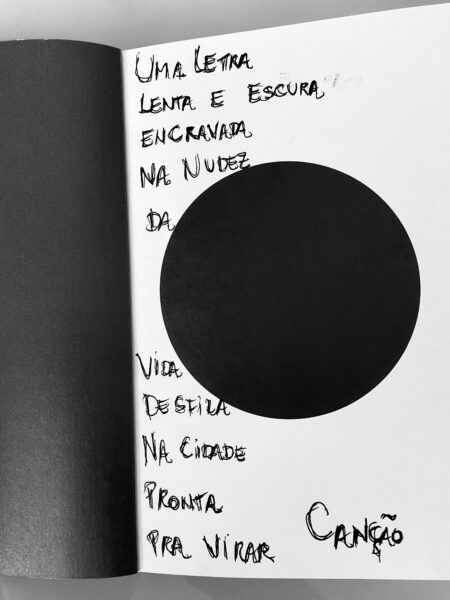 UMA LETRA
LENTA E ESCURA
ENCRAVADA
NA NUDEZ
DA
VIDA
DESFILA
NA CIDADE
PRONTA
PRA VIRAR
CANÇÃO